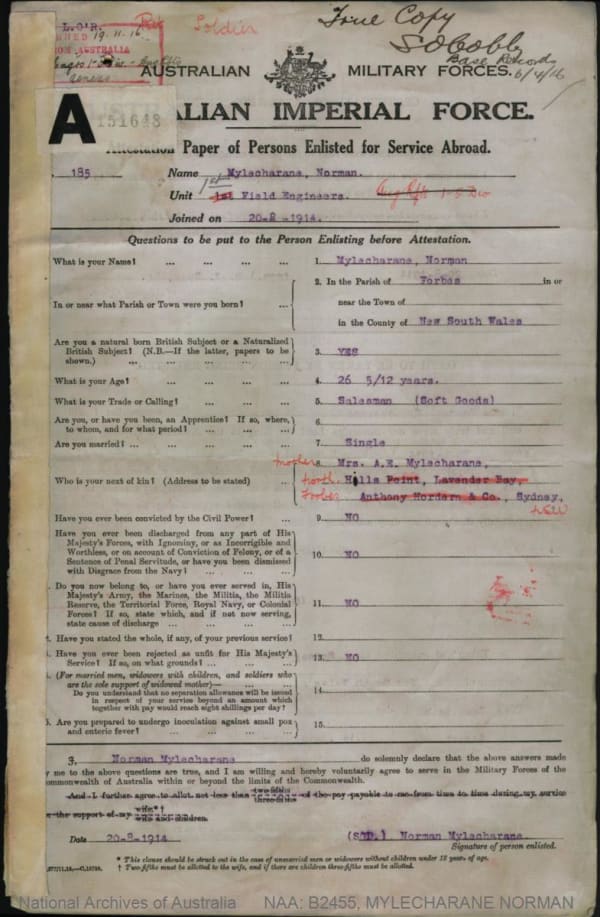 True Copy
Soldier
19.11.16
FROM AUSTRALIA
Base Records
6/4/16
AUSTRALIAN MILITARY FORCES.
A
151643
ALIAN IMPERIAL FORCE.
Attestation Paper of Persons Enlisted for Service Abroad.
185 Name Mylecharane, Norman.
Unit 1st Field Engineers.
Joined on 20-8-1914.
Questions to be put to the Person Enlisting before Attestation.
What is your Name? ... ... ... ... 1. Mylecharane, Norman
2. In the Parish of Forbes in or
In or near what Parish or Town were you born? ... near the Town of
in the County of New South Wales
Are you a natural born British Subject or a Naturalized
British Subject? (N.B.—If the latter, papers to be 3. YES
shown.) ... ... ... ...
What is your Age? ... ... ... ... 4. 26 5/12 years.
What is your Trade or Calling? ... ... ... 5. Salesman (Soft Goods)
Are you, or have you been, an Apprentice? If so, where, 6.
to whom, and for what period? ... ... ...
Are you married? ... ... ... ... ... 7. Single
mother 8. Mrs. A.E. Mylecharane,
Who is your next of kin? (Address to be stated) ... North Hills Point, Lavender Bay,
Forbes Anthony Hordern & Co., Sydney,
NSW
Have you ever been convicted by the Civil Power? ... 9. NO
Have you ever been discharged from any part of His
Majesty's Forces, with Ignominy, or as Incorrigible and
Worthless, or on account of Conviction of Felony, or of a 10. NO
Sentence of Penal Servitude, or have you been dismissed
with Disgrace from the Navy? ... ... ...
Do you now belong to, or have you ever served in, His
Majesty's Army, the Marines, the Militia, the Militia
Reserve, the Territorial Force, Royal Navy, or Colonial 11. NO
Forces? If so, state which, and if not now serving,
state cause of discharge ... ... ... ...
Have you stated the whole, if any, of your previous service? 12.
Have you ever been rejected as unfit for His Majesty's 13. NO
Service? If so, on what grounds? ... ... ...
(For married men, widowers with children, and soldiers who
are the sole support of widowed mother)—
Do you understand that no separation allowance will be issued 14.
in respect of your service beyond an amount which
together with pay would reach eight shillings per day?
Are you prepared to undergo inoculation against small pox 15.
and enteric fever? ... ... ... ...
I, Norman Mylecharane do solemnly declare that the above answers made
me to the above questions are true, and I am willing and hereby voluntarily agree to serve in the Military Forces of the
Commonwealth of Australia within or beyond the limits of the Commonwealth.
And I further agree to allot not less than two-fifths three-fifths of the pay payable to me from time to time during my service
the support of my wife*† wife and children.
Date 20-8-1914 (SGD.) Norman Mylecharane.
Signature of person enlisted.
* This clause should be struck out in the case of unmarried men or widowers without children under 18 years of age.
† Two-fifths must be allotted to the wife, and if there are children three-fifths must be allotted.
National Archives of Australia NAA: B2455, MYLECHARANE NORMAN